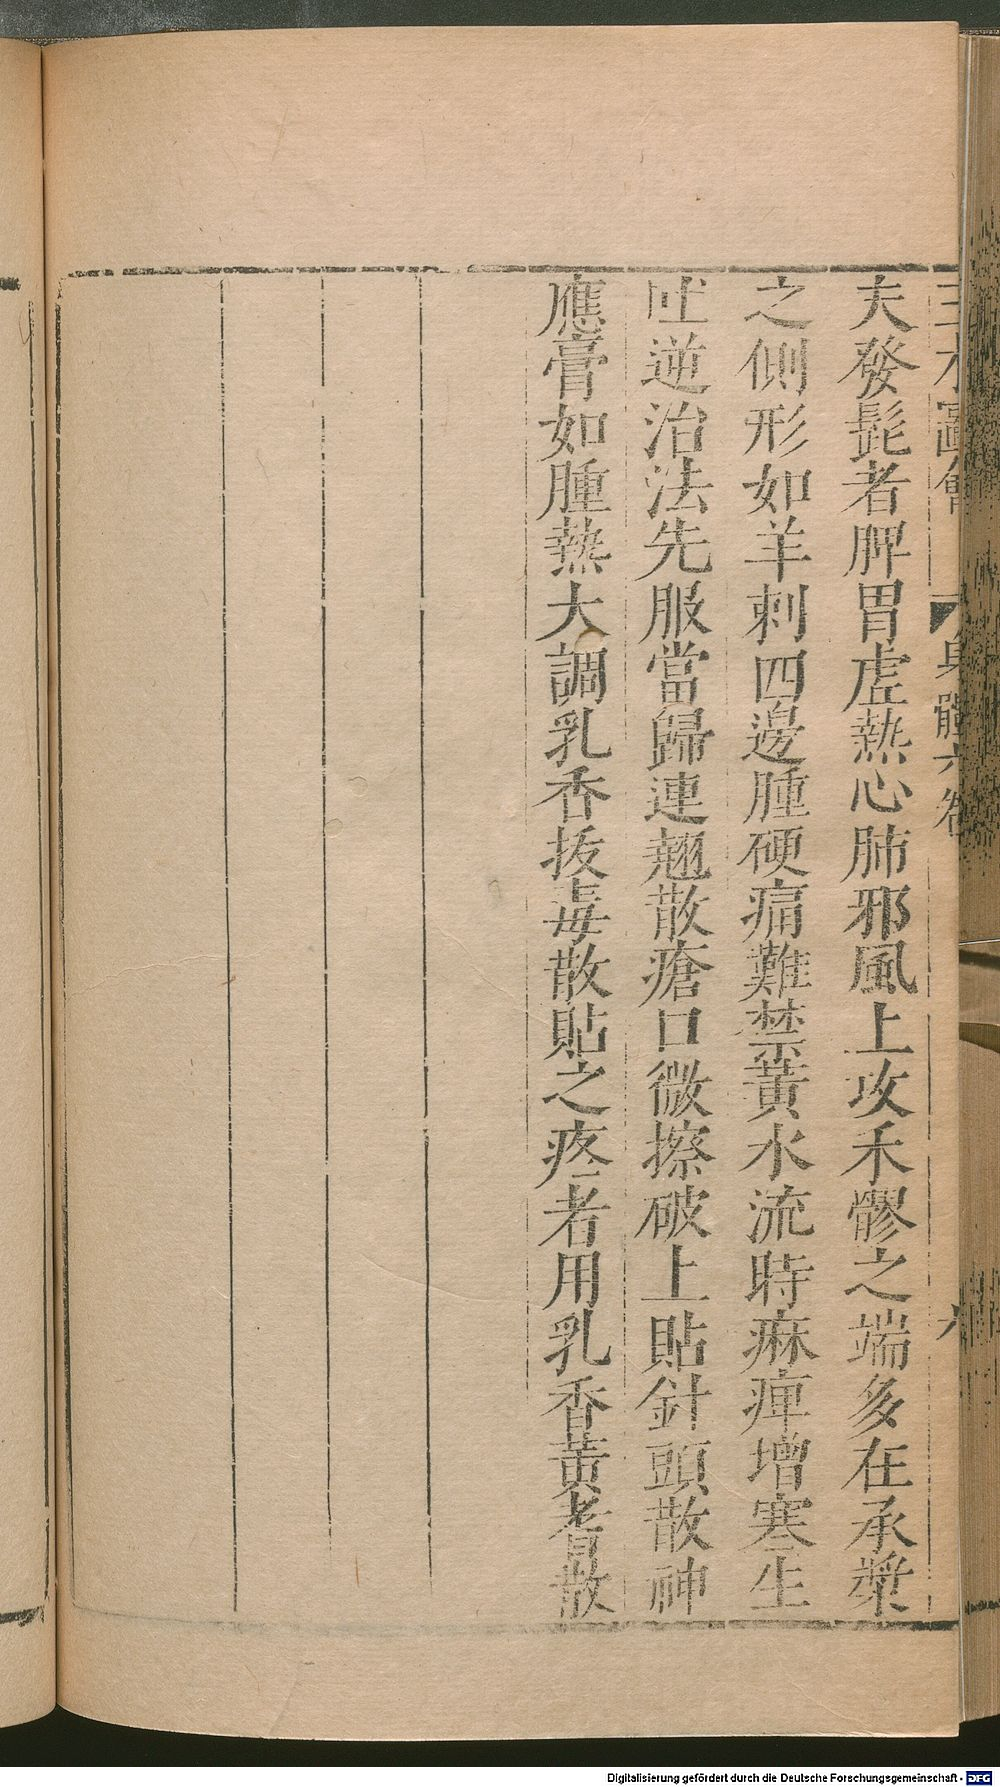 三才圖會 身體六卷 六
夫發髭者脾胃虛熱心肺邪風上攻禾髎之端多在承漿
之側形如羊刺四邊腫硬痛難禁黃水流時麻痺增寒生
吐逆治法先服當歸連翹散瘡口微擦破上貼針頭散神
應膏如腫熱大調乳香拔毒散貼之疼者用乳香黃耆散
Digitalisierung gefördert durch die Deutsche Forschungsgemeinschaft - DFG